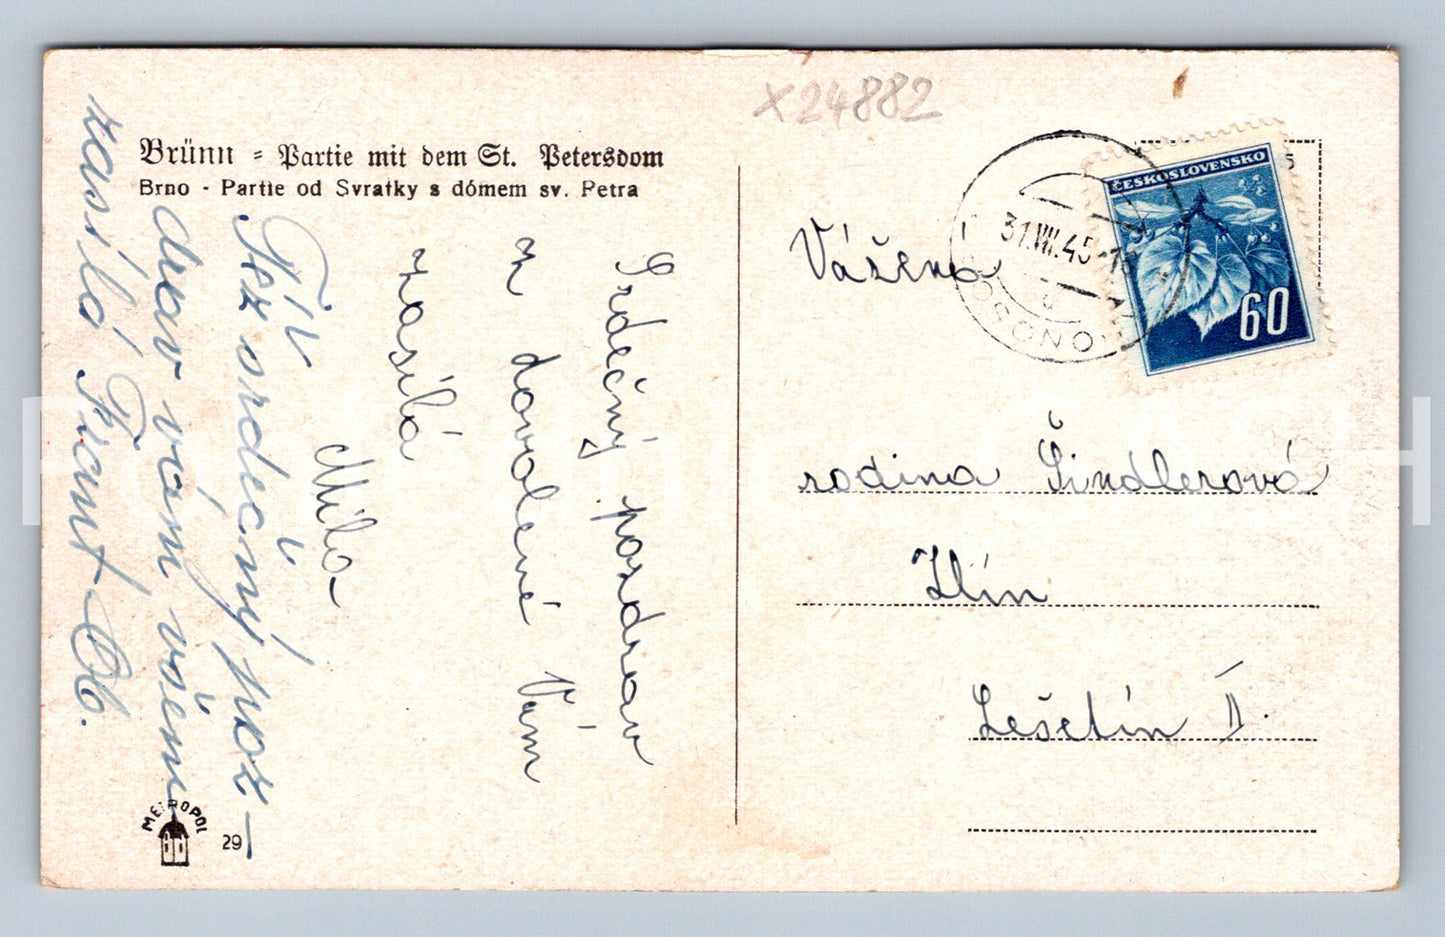 X24882
Brünn - Partie mit dem St. Petersdom
Brno - Partie od Svratky s dómem sv. Petra
Srdečný pozdrav
z dovolené Vám
zasílá
Míla
Též srdečný poz-
drav vám všem
zasílá Frant. Ob.
METROPOL
29
ČESKOSLOVENSKO
60
31.VIII.45-18
Vážená
rodina Šindlerová
Zlín
Lešetín II.